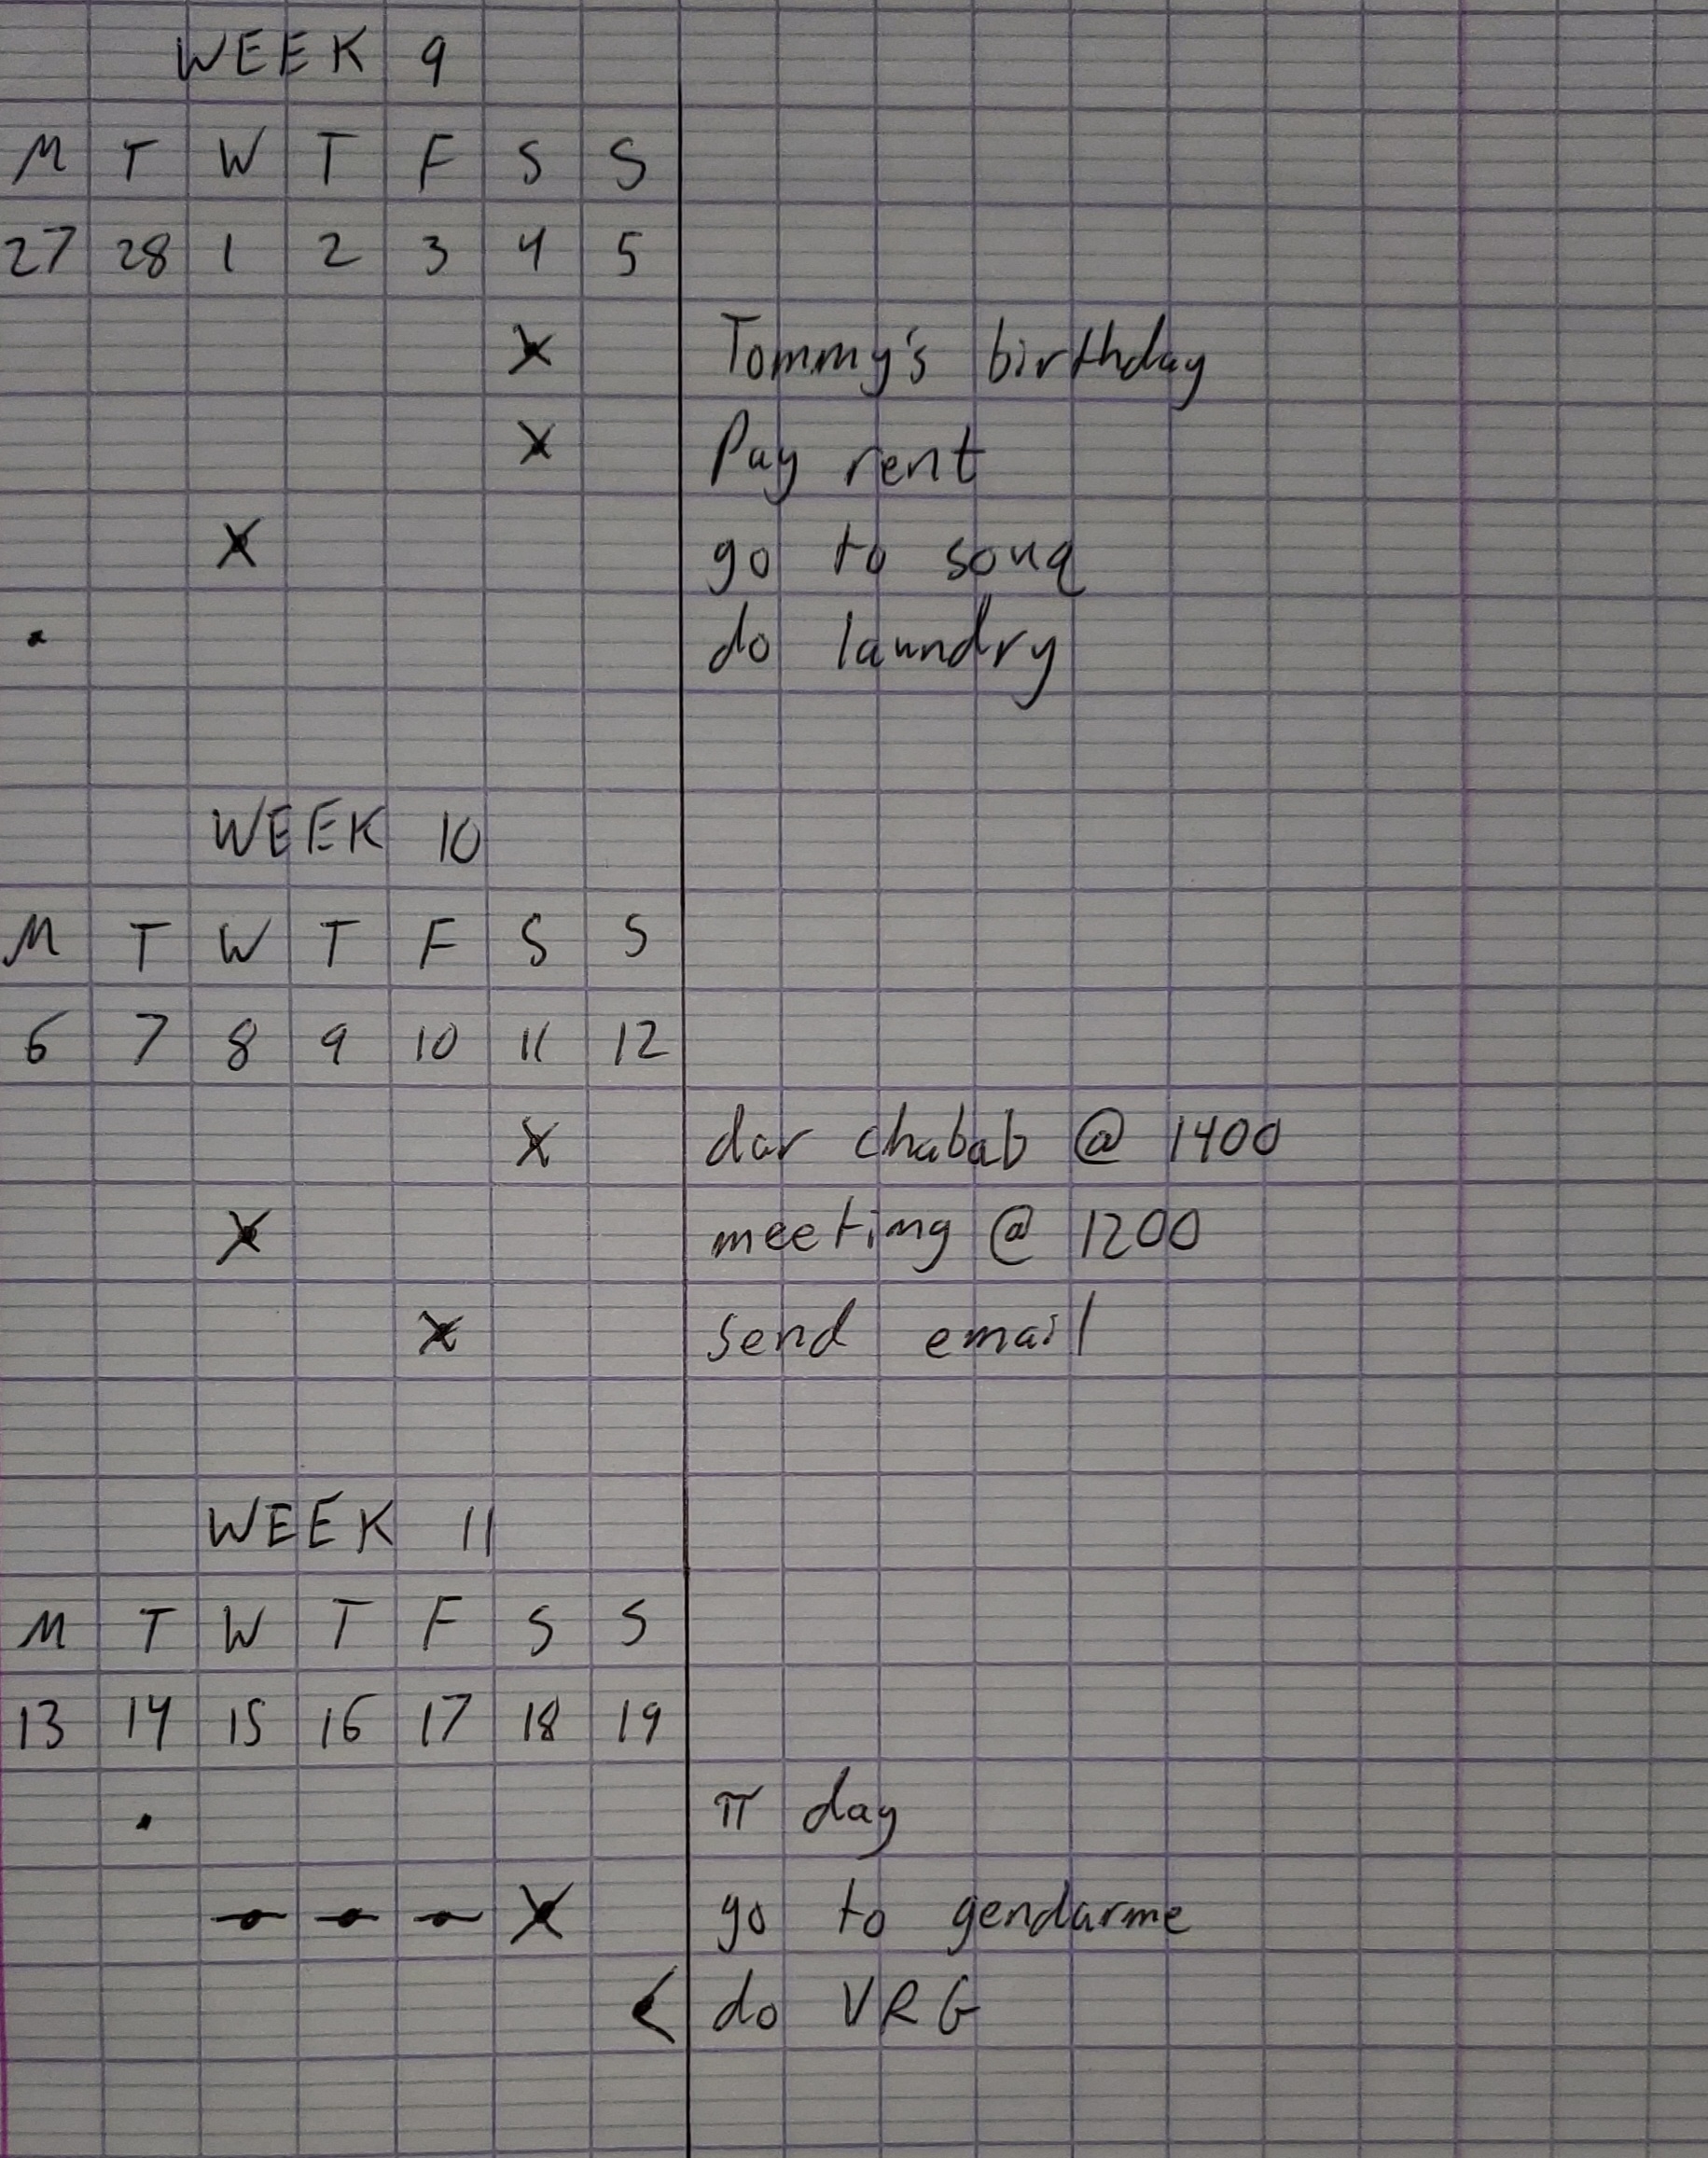 WEEK 9
M T W T F S S
27 28 1 2 3 4 5
x Tommy's birthday
x Pay rent
x go to souq
• do laundry
WEEK 10
M T W T F S S
6 7 8 9 10 11 12
x dar chabab @ 1400
x meeting @ 1200
x send email
WEEK 11
M T W T F S S
13 14 15 16 17 18 19
• π day
- - - x go to gendarme
< do VRG